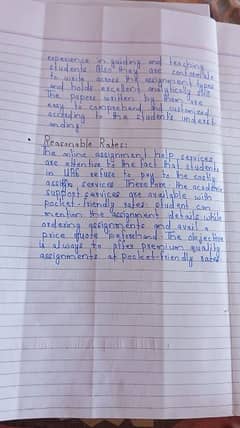 experience in guiding and teaching
students Also they are comfortable
to write across the assignment types
and holds excellent analytically skill
the papers written by them are
easy to comprehend by customized
according to the students underst
anding
• Reasonable Rates:
The online assignment help services
are attentive to the fact that students
in UAE refuse to pay to the costly
services Therefore the academic
support services are available with
pocket-friendly rates student can
mention the assignment details while
ordering assignments and avail a
price quote beforehand The objective
is always to offer premium quality
assignments at pocket-friendly rates